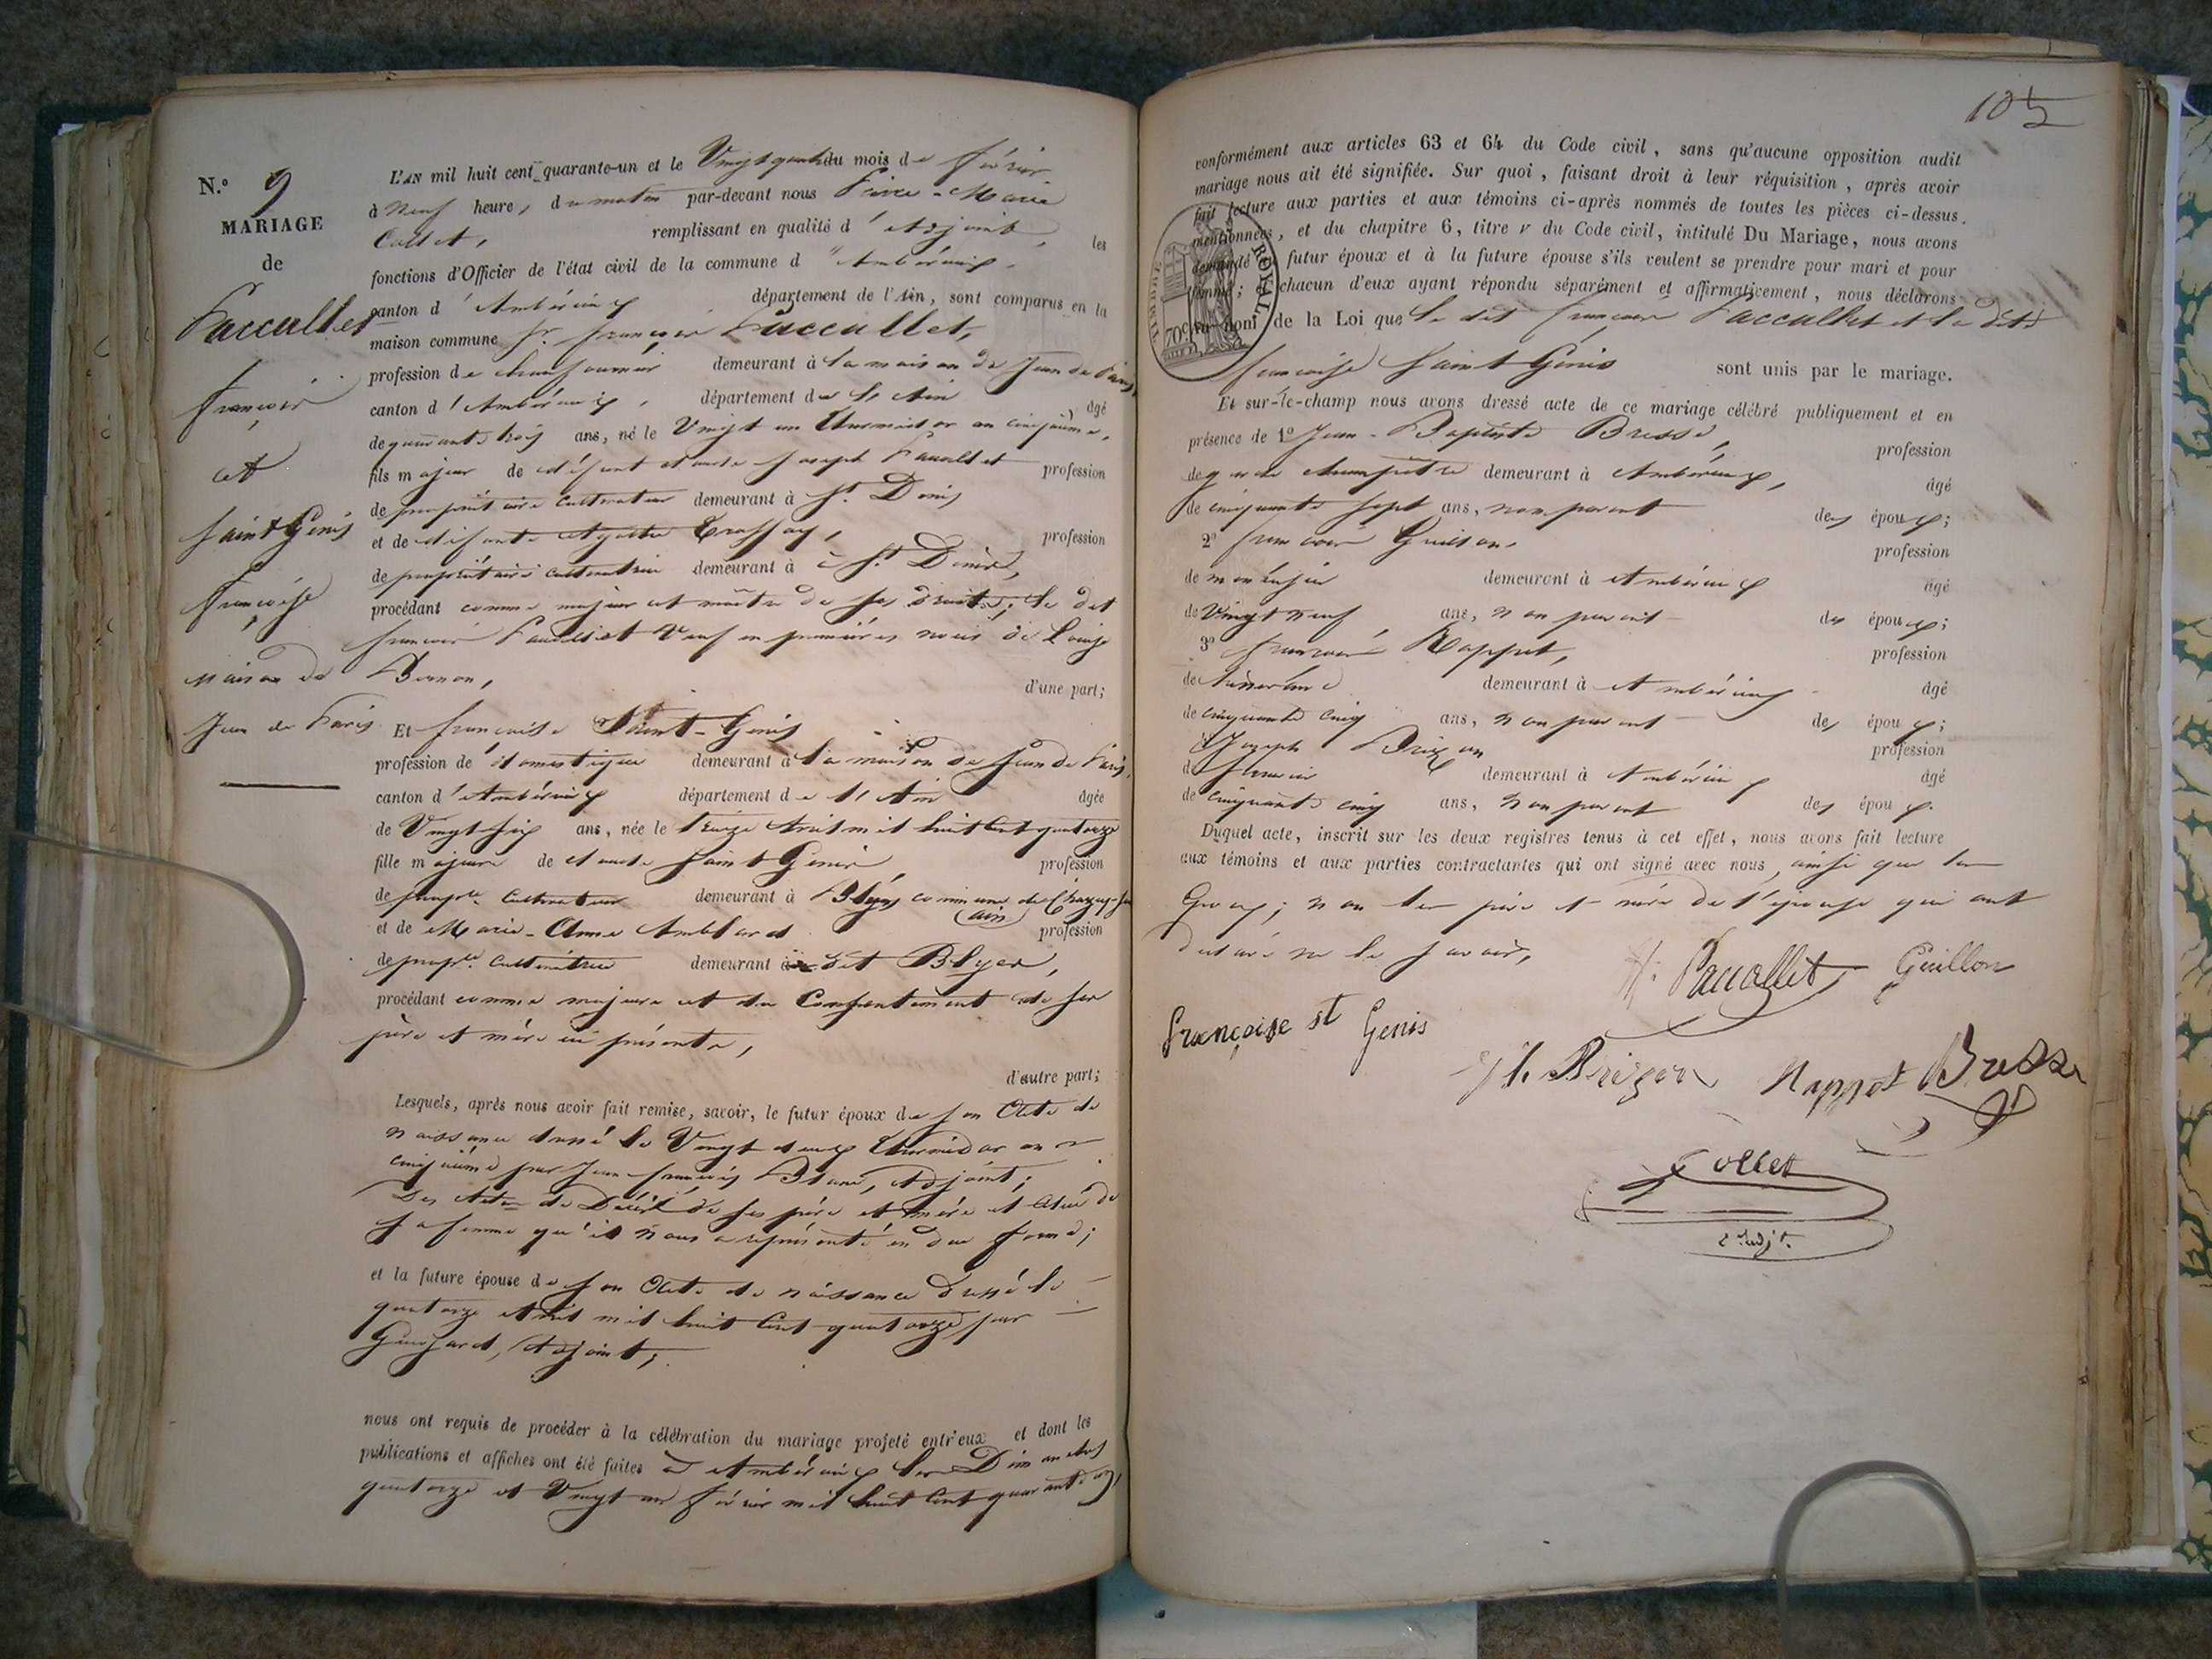 N.º 9
MARIAGE
de
Paccallet
françois
et
Saint Genis
françoise
Maison de
Jean de Paris
L'AN mil huit cent quarante-un et le Vingt quatre du mois de février
à neuf heures du matin par-devant nous Pierre-Marie
Collet, remplissant en qualité d'adjoint, les
fonctions d'Officier de l'état civil de la commune d'Ambérieux,
canton d'Ambérieux département de l'Ain, sont comparus en la
maison commune Sr. françois Paccallet,
profession de demeurant à la maison de Jean de Paris,
canton d'Ambérieux, département de l'Ain âgé
de quarante trois ans, né le Vingt un thermidor an cinquième,
fils majeur de défunt Joseph Paccallet profession
de propriétaire cultivateur demeurant à St. Denis
et de défunte Agathe profession
de propriétaire cultivatrice demeurant à St. Denis,
procédant comme majeur et maître de ses droits; le dit
françois Paccallet Veuf en premières noces de Louise
d'une part;
Et françoise Saint-Genis
profession de domestique demeurant à la maison de Jean de Paris,
canton d'Ambérieux département de l'Ain âgée
de Vingt six ans, née le treize avril mil huit cent quatorze
fille majeure de claude Saint Genis, profession
de propre. cultivateur demeurant à Blyes commune de Chazey-sur
(ain)
et de Marie-Anne Amblard profession
de propre. cultivatrice demeurant à dit Blyes,
procédant comme majeure et du Consentement de ses
père et mère ici présents,
d'autre part;
Lesquels, après nous avoir fait remise, savoir, le futur époux de son Acte de
naissance dressé le Vingt deux thermidor an
cinquième par Jean françois Blanc, Adjoint;
Des Actes de Décès de ses père et mère et Celui de
sa femme qu'il nous a représenté en due forme;
et la future épouse de son Acte de naissance dressé le
quatorze avril mil huit Cent quatorze par
Adjoint;
nous ont requis de procéder à la célébration du mariage projeté entr'eux et dont les
publications et affiches ont été faites à Ambérieux les Dimanches
quatorze et Vingt un février mil huit Cent quarante un,
105
conformément aux articles 63 et 64 du Code civil, sans qu'aucune opposition audit
mariage nous ait été signifiée. Sur quoi, faisant droit à leur réquisition, après avoir
fait lecture aux parties et aux témoins ci-après nommés de toutes les pièces ci-dessus
mentionnées, et du chapitre 6, titre v du Code civil, intitulé Du Mariage, nous avons
demandé au futur époux et à la future épouse s'ils veulent se prendre pour mari et pour
femme; et chacun d'eux ayant répondu séparément et affirmativement, nous déclarons
au nom de la Loi que le dit françois Paccallet et la dite
françoise Saint Genis sont unis par le mariage.
TIMBRE ROYAL
70c
Et sur-le-champ nous avons dressé acte de ce mariage célébré publiquement et en
présence de 1º Jean-Baptiste Bresse, profession
de garde champêtre demeurant à Ambérieux, âgé
de cinquante sept ans, non parent des époux;
2º françois Guillon, profession
de menuisier demeurant à Ambérieux âgé
de Vingt neuf ans, non parent des époux;
3º françois Rappet, profession
de tisserand demeurant à Ambérieux âgé
de cinquante cinq ans, non parent des époux;
4º Joseph Brizon profession
de demeurant à Ambérieux âgé
de cinquante cinq ans, non parent des époux.
Duquel acte, inscrit sur les deux registres tenus à cet effet, nous avons fait lecture
aux témoins et aux parties contractantes qui ont signé avec nous, ainsi que les
Epoux; non les père et mère de l'épouse qui ont
déclaré ne le savoir,
Paccallet Guillon
françoise st Genis
Jh. Brizon Rappet Bresse
Collet
adjt.